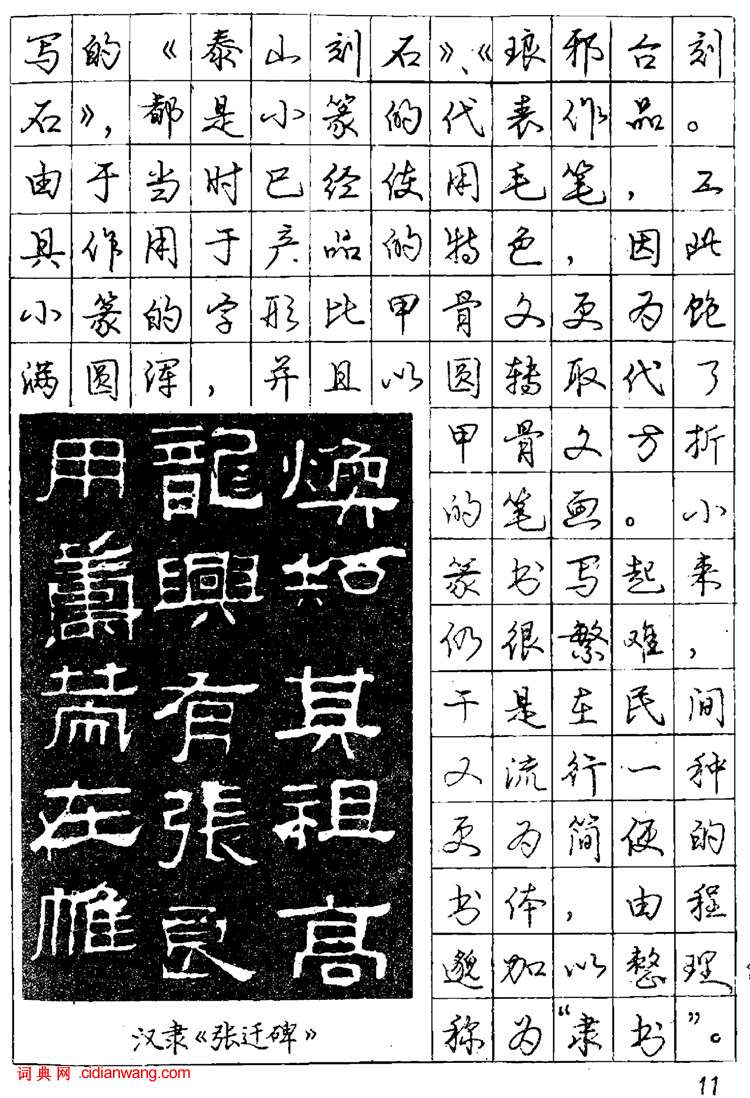 写的《泰山刻石》、《琅邪台刻
石》，都是小篆的代表作品。
由于当时已经使用毛笔，工
具作用于产品的特色，因此
小篆的字形比甲骨文更为饱
满圆浑，并且以圆转取代了
甲骨文方折
的笔画。小
篆书写起来
仍很繁难，
于是在民间
又流行一种
更为简便的
书体，由程
邈加以整理，
称为“隶书”。
煥知其祖高
龍興有張良
用籌策在帷
汉隶《张迁碑》
词典网.cidianwang.com
11